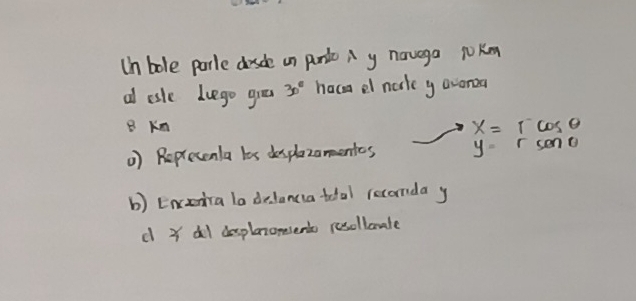 Un bote parte desde un punto A y navega 10 Km
al este luego gira 30° hacia el norte y avanza
8 Km
a) Representa los desplazamientos
x = r cos θ
y = r sen θ
b) Encontra la distancia total recorrida y
el ∡ del desplazamiento resultante